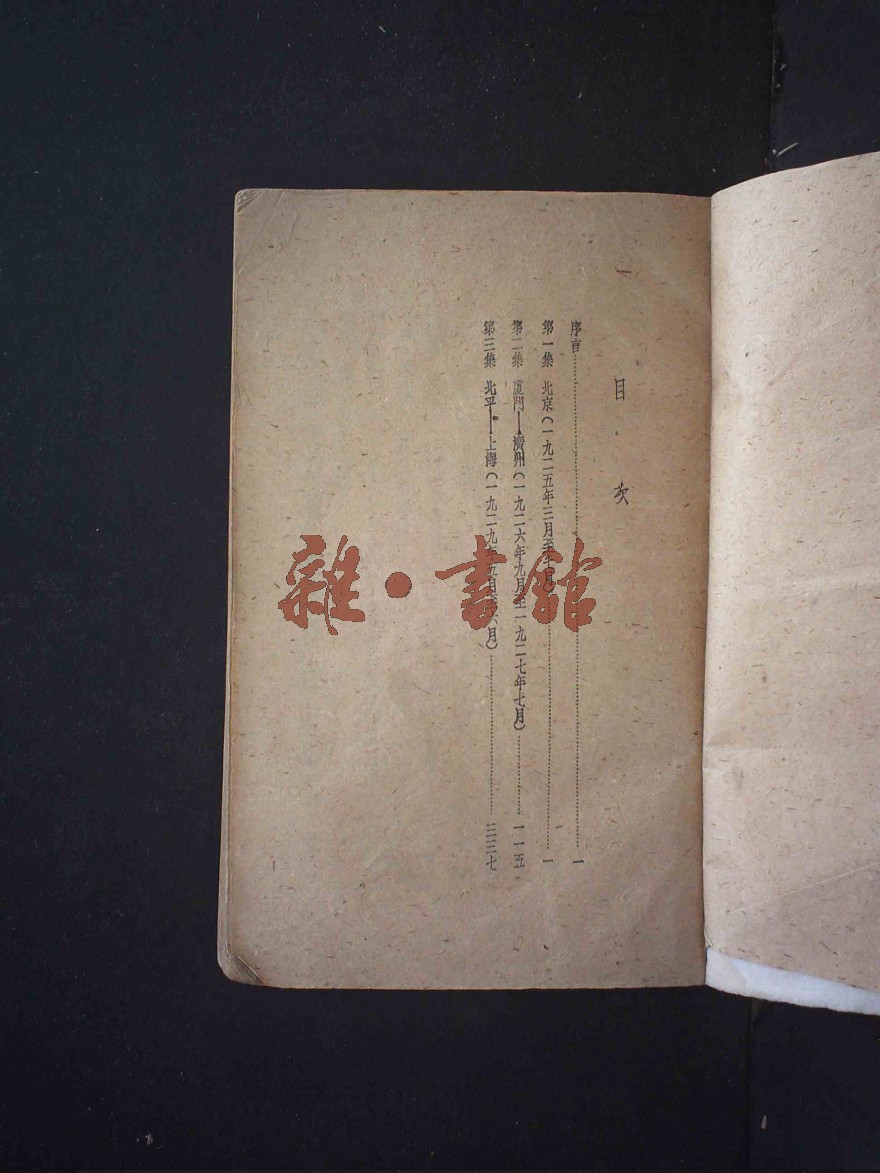 目次
序言…………一
第一集 北京(一九二五年三月至七月)…………一
第二集 廈門——廣州(一九二六年九月至一九二七年七月)…………一一五
第三集 北平——上海(一九二九年五月至六月)…………二三七
雜·書館